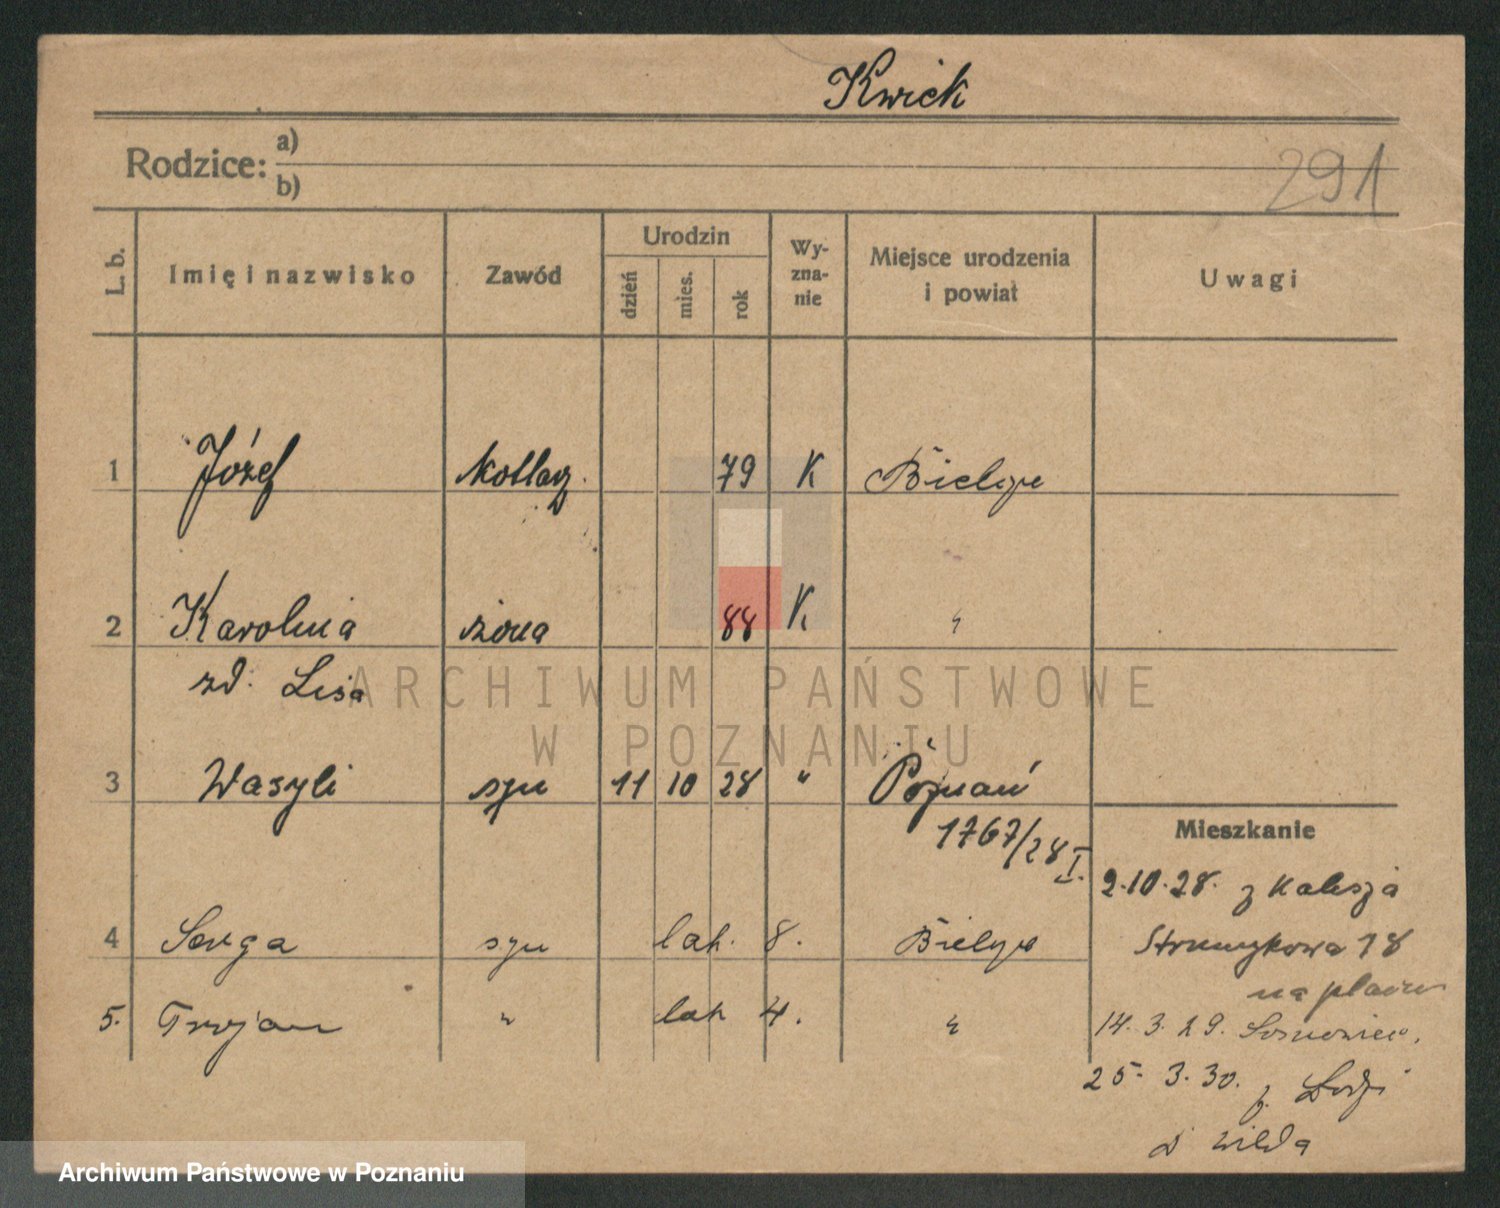 Kwiek
Rodzice: a)
b)
291
L. b.
Imię i nazwisko
Zawód
Urodzin
dzień
mies.
rok
Wy-
zna-
nie
Miejsce urodzenia
i powiat
Uwagi
1 Józef kotlarz. 79 K Bielsze
2 Karolina żona 88 K "
zd. Lisa
3 Wasyli syn 11 10 28 " Poznań
1767/28 I.
Mieszkanie
2.10.28. z Kalisza
4 syn lat. 8. Bielsze
Strumykowa 18
na placu
5. Trojan " lat 4. "
14. 3. 29. Sosnowiec.
25. 3. 30. z Łodzi
Wilda
ARCHIWUM PAŃSTWOWE
W POZNANIU
Archiwum Państwowe w Poznaniu